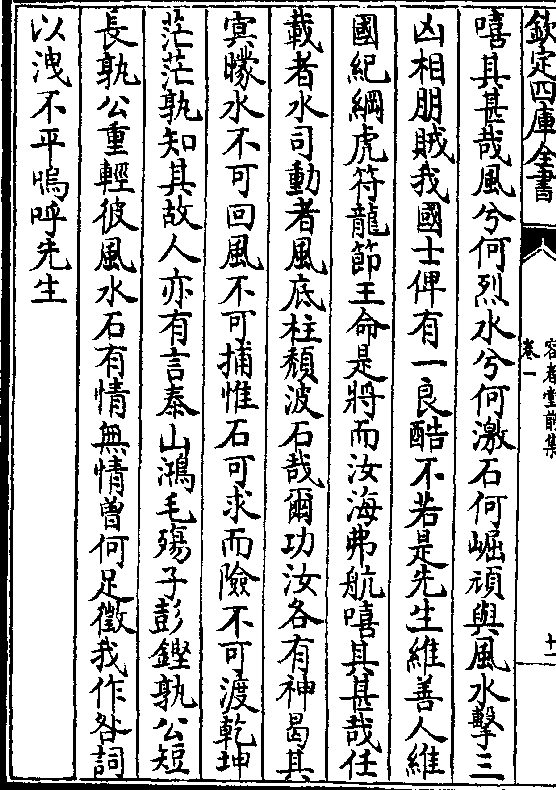 欽定四庫全書
容春堂前集
卷一
十一
嘻其甚哉風兮何烈水兮何激石何崛頑與風水擊三
凶相朋賊我國士俾有一良酷不若是先生維善人維
國紀綱虎符龍節王命是將而汝海弗航嘻其甚哉任
載者水司動者風底柱頹波石哉爾功汝各有神曷其
冥矇水不可回風不可捕惟石可求而險不可渡乾坤
茫茫孰知其故人亦有言泰山鴻毛殤子彭鏗孰公短
長孰公重輕彼風水石有情無情曽何足徵我作咎詞
以洩不平嗚呼先生